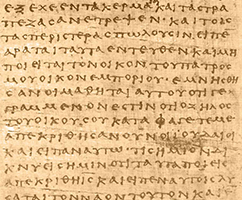 ΕΞΕΧΕΕΝΤΑΚΕΡΜΑ ΚΑΙΤΑϹΤΡΑ
ΠΕΖΑϹΑΝΕΤΡΕΨΕΝ· ΚΑΙΤΟΙϹ
ΤΑϹΠΕΡΙϹΤΕΡΑϹΠΩΛΟΥϹΙΝΕΙΠΕ
ΑΡΑΤΑΙΤΑΥΤΑΕΝΤΕΥΘΕΝΚΑΙΜΗ
ΠΟΙΕΙΤΑΙΤΟΝΟΙΚΟΝΤΟΥΠΑΤΡΟϹ
ΜΟΥΟΙΚΟΝΕΜΠΟΡΙΟΥ· ΕΜΝΗϹΘΗ
ϹΑΝΟΙΜΑΘΗΤΑΙΑΥΤΟΥΟΤΙΓΕ
ΓΡΑΜΜΕΝΟΝΕϹΤΙΝΟΤΙΟΖΗΛΟϹ
ΤΟΥΟΙΚΟΥϹΟΥΚΑΤΑΦΑΓΕΤΕΜΕ
ΑΠΕΚΡΙΘΗϹΑΝΟΥΝΟΙΙΟΥΔΑΙΟΙ
ΚΑΙΕΙΠΑΝΑΥΤΩ· ΤΙϹΗΜΙΟΝΔΙ
ΚΝΥΕΙϹΗΜΙΝΟΤΙΤΑΥΤΑΠΟΙΕΙϹ
ΑΠΕΚΡΙΘΗΙϹΚΑΙΕΙΠΕΝΑΥΤΟΙϹΛΥ
ϹΑΤΑΙΤΟΝΝΑΟΝΤΟΥΤΟΝΚΑΙ